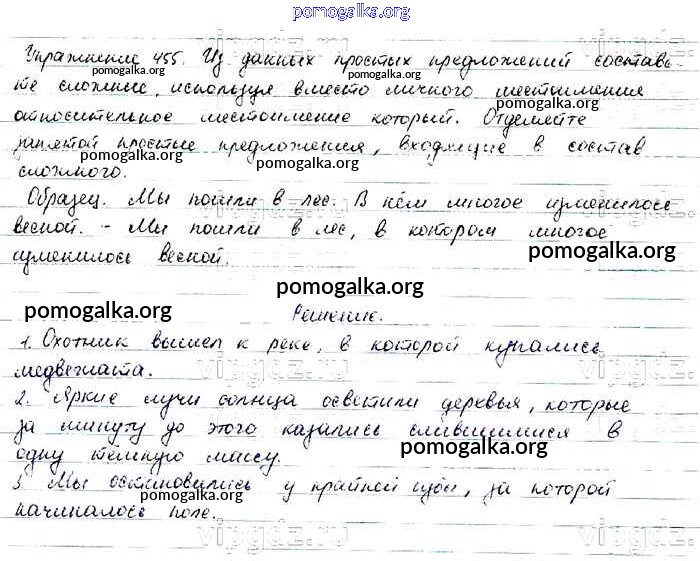 pomogalka.org
Упражнение 455. Из данных простых предложений составь-
pomogalka.org
pomogalka.org
те сложные, используя вместо личного местоимения
pomogalka.org
относительное местоимение который. Отделяйте
запятой простые предложения, входящие в состав
pomogalka.org
pomogalka.org
сложного.
Образец. Мы пошли в лес. В нём многое изменилось
весной. - Мы пошли в лес, в котором многое
изменилось весной.
pomogalka.org
pomogalka.org
pomogalka.org
Решение.
1. Охотник вышел к реке, в которой купались
медвежата.
vipgdz.ru
2. Яркие лучи солнца осветили деревья, которые
за минуту до этого казались слившимися в
pomogalka.org
одну тёмную массу.
3. Мы остановились у крайней избы, за которой
pomogalka.org
pomogalka.org
началось поле.
vipgdz.ru